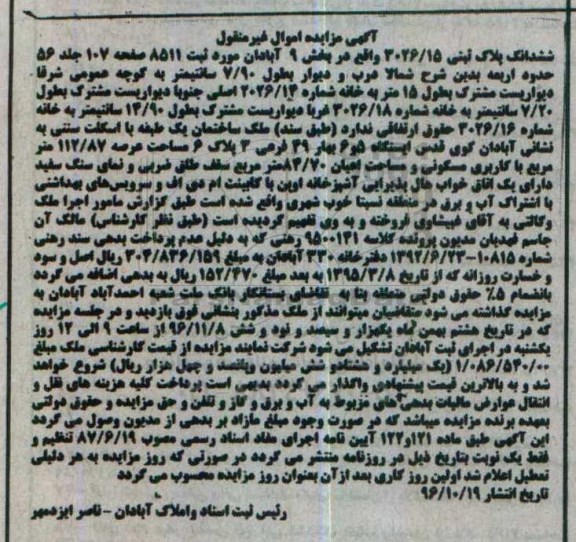 آگهی مزایده اموال غیرمنقول
ششدانگ پلاک ثبتی ۳۰۲۶/۱۵ واقع در بخش ۹ آبادان مورد ثبت ۸۵۱۱ صفحه ۱۰۷ جلد ۵۶
حدود اربعه بدین شرح شمالا درب و دیوار بطول ۷/۹۰ سانتیمتر به کوچه عمومی شرقا
دیواریست مشترک بطول ۱۵ متر به خانه شماره ۳۰۲۶/۱۴ اصلی جنوبا دیواریست مشترک بطول
۷/۲۰ سانتیمتر به خانه شماره ۳۰۲۶/۱۸ غربا دیواریست مشترک بطول ۱۴/۹۰ سانتیمتر به خانه
شماره ۳۰۲۶/۱۶ حقوق ارتفاقی ندارد (طبق سند) ملک ساختمان یک طبقه با اسکلت سنتی به
نشانی آبادان کوی قدس ایستگاه ۵و۶ بهار ۳۹ فرعی ۳ پلاک ۶ مساحت عرصه ۱۱۲/۸۷ متر
مربع با کاربری مسکونی و مساحت اعیان ۸۴/۷۰ متر مربع سقف طاق ضربی و نمای سنگ سفید
دارای یک اتاق خواب هال پذیرایی آشپزخانه اوپن با کابینت ام دی اف و سرویس‌های بهداشتی
با اشتراک آب و برق در منطقه نسبتا خوب شهری واقع شده است طبق گزارش مامور اجرا ملک
وکالتی به آقای غبیشاوی فروخته و به وی تفهیم گردیده است (طبق نظر کارشناس) مالک آن
جاسم مدیون پرونده کلاسه ۹۵۰۰۱۳۱ رهنی که به دلیل عدم پرداخت بدهی سند رهنی
شماره ۱۰۸۱۵-۱۳۹۲/۶/۲۳ دفترخانه ۳۳۰ آبادان به مبلغ ۳۰۳/۸۳۶/۱۵۹ ریال اصل و سود
و خسارت روزانه که از تاریخ ۱۳۹۵/۳/۸ به بعد مبلغ ۱۵۲/۴۷۰ ریال به بدهی اضافه می گردد
بانضمام ۵٪ حقوق دولتی متعلقه بنا به تقاضای بستانکار بانک ملت شعبه احمدآباد آبادان به
مزایده گذاشته می شود متقاضیان میتوانند از ملک مذکور بنشانی فوق بازدید و در جلسه مزایده
که در تاریخ هشتم بهمن ماه یکهزار و سیصد و نود و شش ۹۶/۱۱/۸ از ساعت ۹ الی ۱۲ روز
یکشنبه در اجرای ثبت آبادان تشکیل می شود شرکت نمایند مزایده از قیمت کارشناسی ملک مبلغ
۱/۰۸۶/۵۴۰/۰۰۰ (یک میلیارد و هشتادو شش میلیون وپانصد و چهل هزار ریال) شروع خواهد
شد و به بالاترین قیمت پیشنهادی واگذار می گردد بدیهی است پرداخت کلیه هزینه های نقل و
انتقال عوارض مالیات بدهی های مربوط به آب و برق و گاز و تلفن و حق مزایده و حقوق دولتی
بعهده برنده مزایده میباشد که در صورت وجود مبلغ مازاد بر بدهی از مدیون وصول می گردد
این آگهی طبق ماده ۱۲۱و۱۲۲ آیین نامه اجرای مفاد اسناد رسمی مصوب ۸۷/۶/۱۹ تنظیم و
فقط یک نوبت بتاریخ ذیل در روزنامه منتشر می گردد در صورتی که روز مزایده به هر دلیلی
تعطیل اعلام شد اولین روز کاری بعد ازآن بعنوان روز مزایده محسوب می گردد
تاریخ انتشار ۹۶/۱۰/۱۹
رئیس ثبت اسناد واملاک آبادان -ناصر ایزدمهر